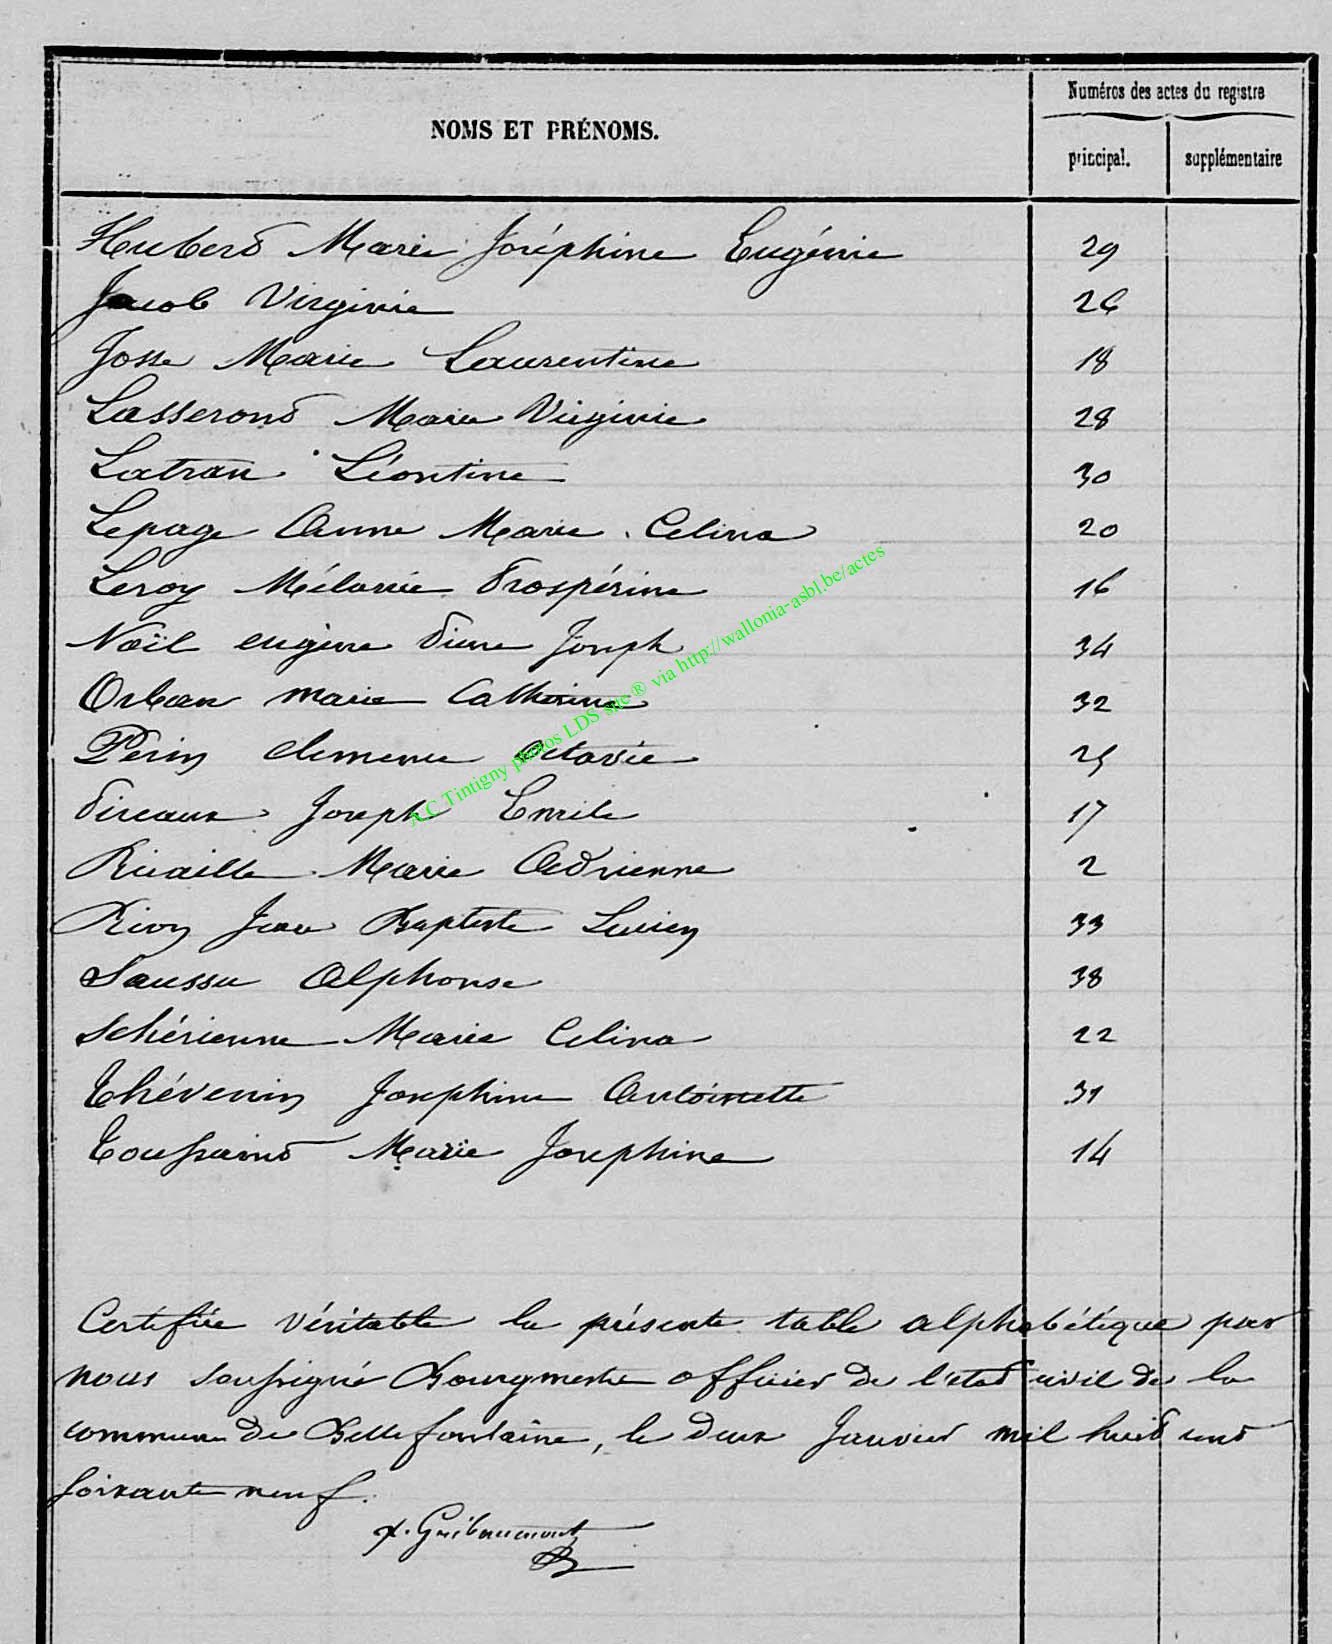 Numéros des actes du registre
NOMS ET PRÉNOMS.
principal. supplémentaire
Hubert Marie Joséphine Eugénie 29
Jacob Virginie 26
Josse Marie Laurentine 18
Lasserond Marie Virginie 28
Latran Léontine 30
Lepage Anne Marie Celina 20
Leroy Mélanie Prospérine 16
Noël eugène Pierre Joseph 34
Orban marie Catherine 32
Perin clemence Octavie 25
Joseph Emile 17
Marie Adrienne 2
Rion Jean Baptiste Lucien 33
Saussu Alphonse 38
Schérienne Marie Celina 22
Thévenin Josephine Antoinette 31
Toussaint Marie Josephine 14
Certifiée véritable la présente table alphabétique par
nous soussigné Bourgmestre officier de l'etat civil de la
commune de Bellefontaine, le deux Janvier mil huit cent
soixante neuf.
Guibaumont
A.C. Tintigny photos LDS site® via http://wallonia-asbl.be/actes